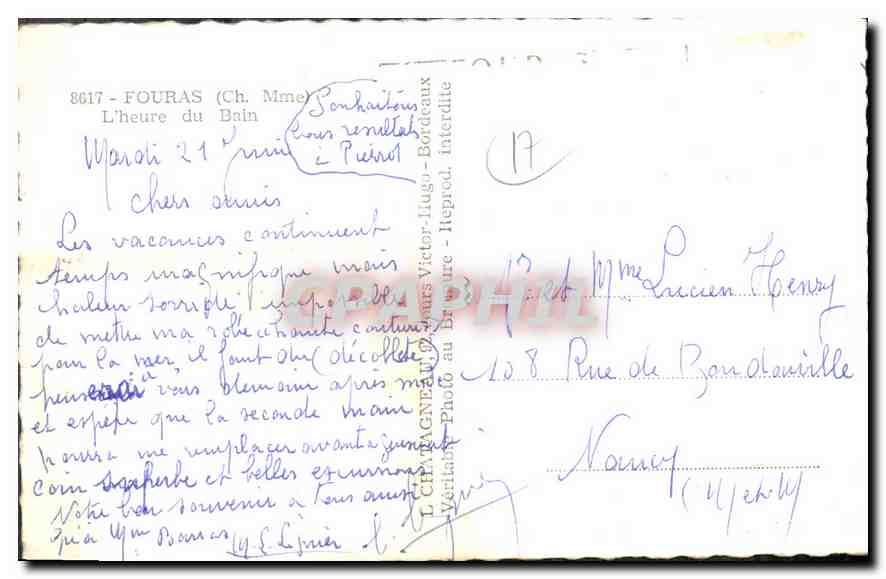 8617 - FOURAS (Ch. Mme)
L'heure du Bain
Souhaitons
bons resultats
à Pierrot
Mardi 21 juin
Chers amis
Les vacances continuent
temps magnifique mais
chaleur torride impossible
de mettre ma robe chaude
pour la mer il faut du (décolleté)
à vous demain après
et espère que la seconde main
pourra me remplacer avantageusement
coin superbe et belles excursions
Notre bon souvenir à tous ainsi
Mme
L. CHATAGNEAU, Cours Victor-Hugo - Bordeaux
Véritable Photo au Bromure - Reprod. interdite
CPAPHIL
17
Mr et Mme Lucien Henry
108 Rue de Boudonville
Nancy
(M et M